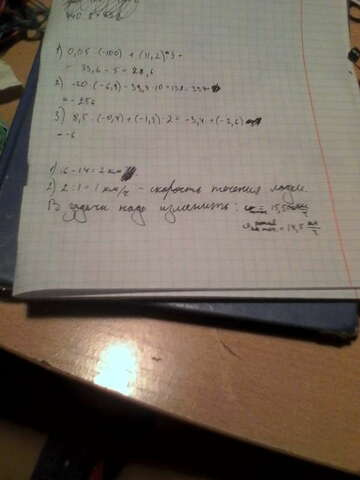 1) 0,05 · (-100) + (11,2) · 3 =
= 33,6 - 5 = 28,6
2) -20 · (-6,9) - 39,4 · 10 = 138 - 394
= -256
3) 8,5 · (-0,4) + (-1,3) · 2 = -3,4 + (-2,6)
= -6
1) 16 - 14 = 2 км
2) 2 : 1 = 1 км/ч - скорость течения
В задачи надо изменить: = 15,5
= 14,5 км/ч